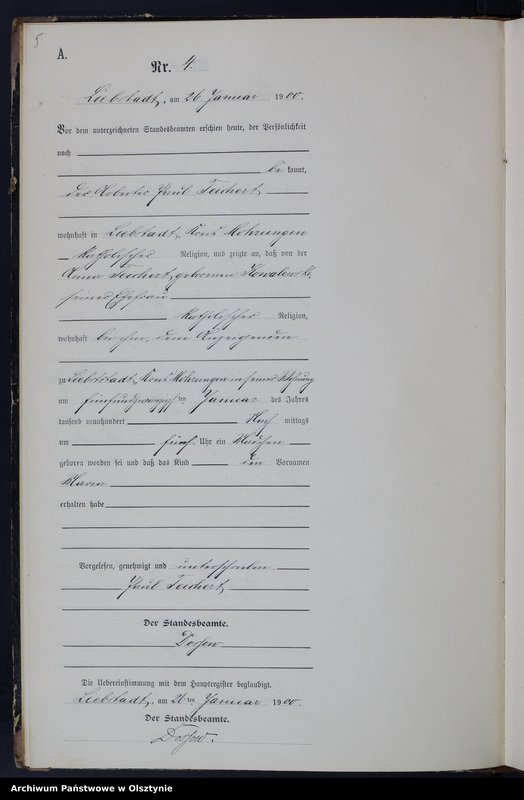 5
A.
Nr. 4.
Liebstadt, am 26 Januar 1900.
Vor dem unterzeichneten Standesbeamten erschien heute, der Persönlichkeit
nach
be kannt,
der Arbeiter Paul Teichert
wohnhaft in Liebstadt, Kreis Mohrungen
katholischer Religion, und zeigte an, daß von der
Anna Teichert, geborenen
seiner Ehefrau
katholischer Religion,
wohnhaft bei ihm, dem Anzeigenden
zu Liebstadt, Kreis Mohrungen in seiner Wohnung
am fünfundzwanzigsten Januar des Jahres
tausend neunhundert Nach mittags
um fünf Uhr ein Mädchen
geboren worden sei und daß das Kind den Vornamen
Maria
erhalten habe
Vorgelesen, genehmigt und unterschrieben
Paul Teichert
Der Standesbeamte.
Die Uebereinstimmung mit dem Hauptregister beglaubigt.
Liebstadt, am 26 ten Januar 1900.
Der Standesbeamte.
Archiwum Państwowe w Olsztynie